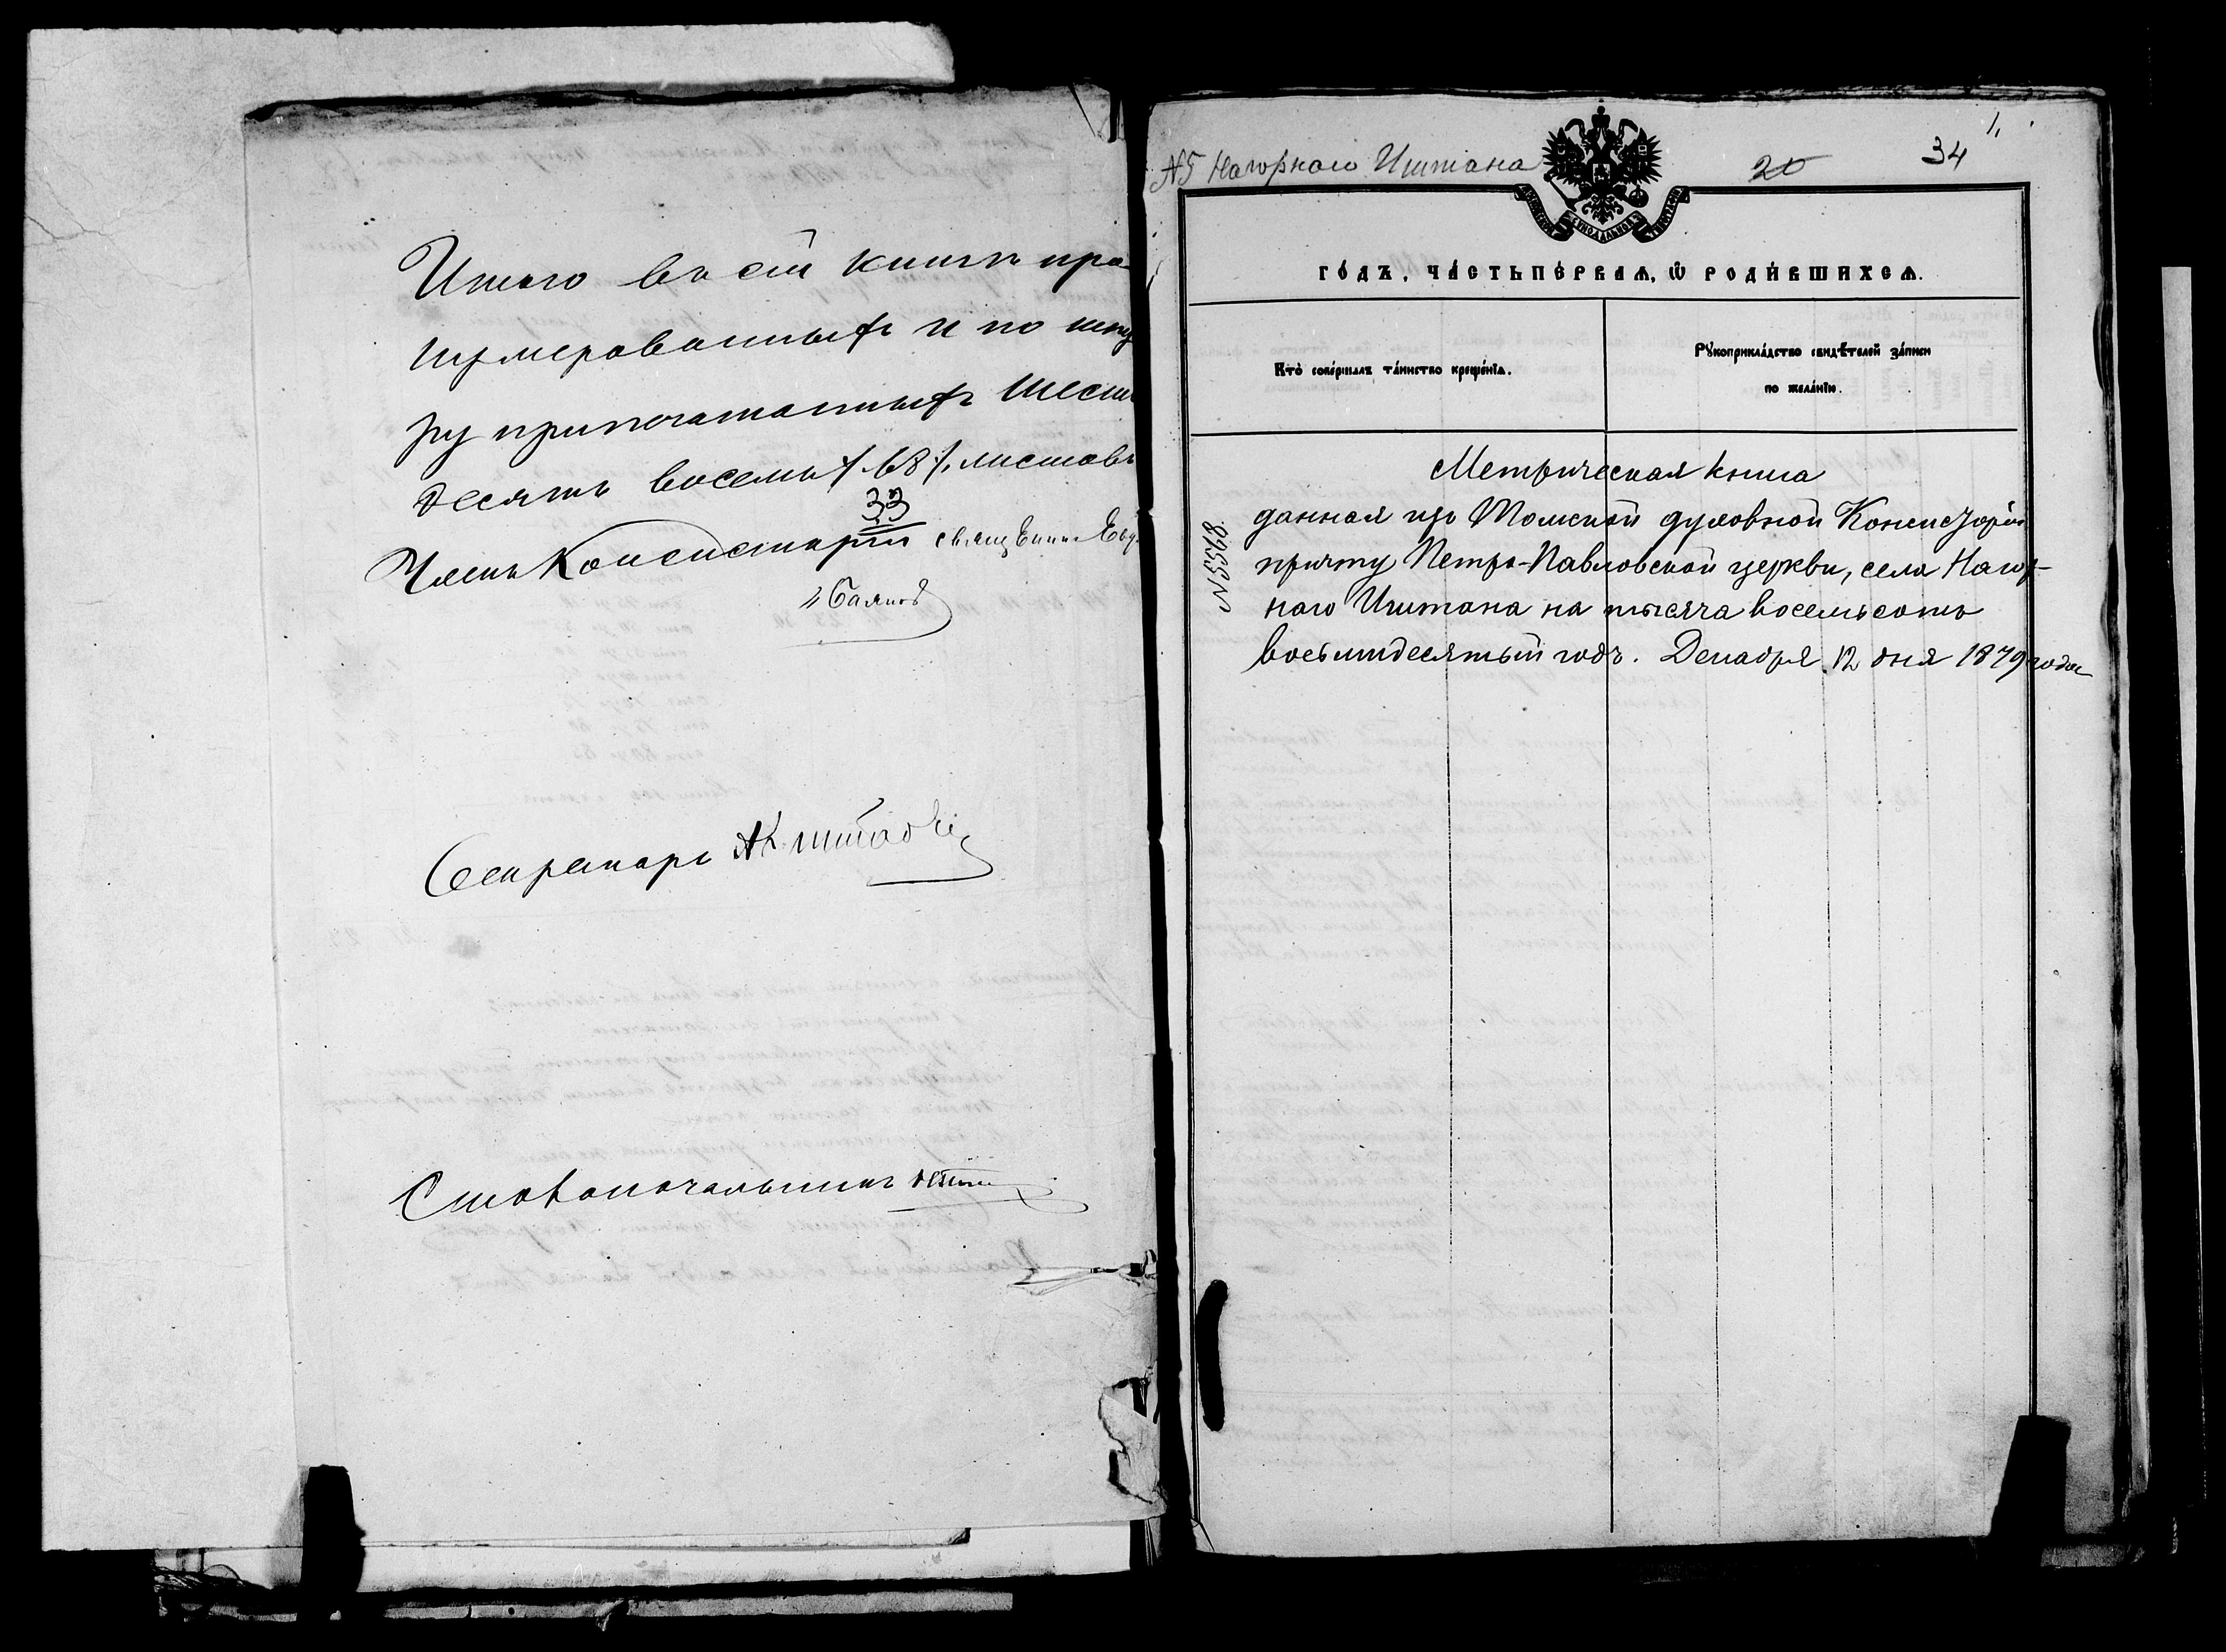 Итого въ сей книгѣ про-
нумерованныхъ и по шну
ру припечатанныхъ шесть
десятъ восемь /68/. листовъ
33
Членъ Консисторіи священникъ
Секретарь
Столоначальникъ
№5 Нагорнаго Иштана
20
34
1,
ГО́ДЪ, ЧА́СТЬ ПЕ́РВАѦ, Ѿ РОДИ́ВШИХСѦ.
Кто̀ соверша́лъ та́инство креще́нїѧ.
Рꙋкоприкла́дство свидѣ́телей за́писи
по жела́нїю.
№5568.
Метрическая книга
данная изъ Томской духовной Консисторіи
причту Петро-Павловской церкви, села Нагор-
наго Иштана на тысяча восемьсотъ
восьмидесятый годъ. Декабря 12 дня 1879 года